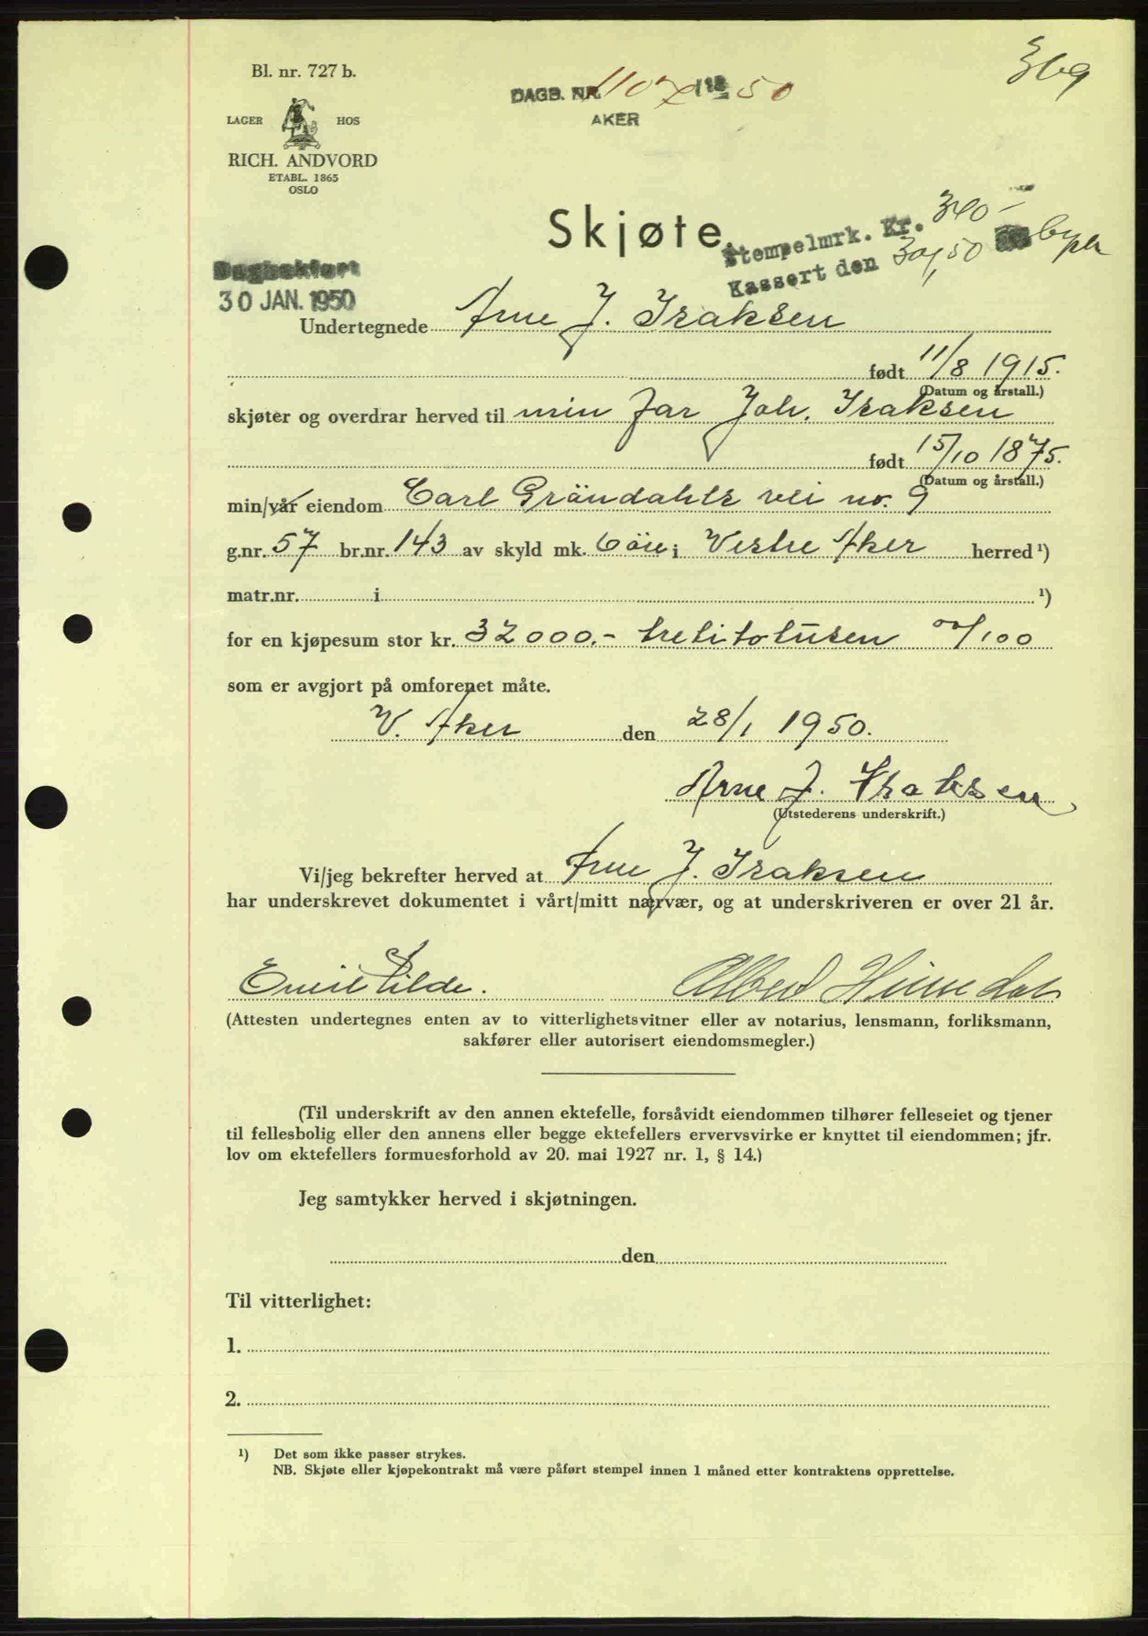 369
Bl. nr. 727 b.
DAGB. NR. 1107 19 50
AKER
LAGER HOS
RICH. ANDVORD
ETABL. 1865
OSLO
Skjøte
Stempelmrk. Kr. 340.-
Kassert den 30/1 50
Dagbokført
30 JAN. 1950
Undertegnede Arne J. Isaksen
født 11/8 1915.
(Datum og årstall.)
skjøter og overdrar herved til min far Joh. Isaksen
født 15/10 1875.
(Datum og årstall.)
min/vår eiendom Carl Gröndahls vei no. 9
g.nr. 57 br.nr. 143 av skyld mk. 6 öre i Vestre Aker herred ¹)
matr.nr. i ¹)
for en kjøpesum stor kr. 32000.- trettitotusen 00/100
som er avgjort på omforenet måte.
V. Aker den 28/1 1950.
Arne J. Isaksen
(Utstederens underskrift.)
Vi/jeg bekrefter herved at Arne J. Isaksen
har underskrevet dokumentet i vårt/mitt nærvær, og at underskriveren er over 21 år.
Emil Tilde. Albert Heimdal
(Attesten undertegnes enten av to vitterlighetsvitner eller av notarius, lensmann, forliksmann,
sakfører eller autorisert eiendomsmegler.)
(Til underskrift av den annen ektefelle, forsåvidt eiendommen tilhører felleseiet og tjener
til fellesbolig eller den annens eller begge ektefellers ervervsvirke er knyttet til eiendommen; jfr.
lov om ektefellers formuesforhold av 20. mai 1927 nr. 1, § 14.)
Jeg samtykker herved i skjøtningen.
den
Til vitterlighet:
1.
2.
¹) Det som ikke passer strykes.
NB. Skjøte eller kjøpekontrakt må være påført stempel innen 1 måned etter kontraktens opprettelse.